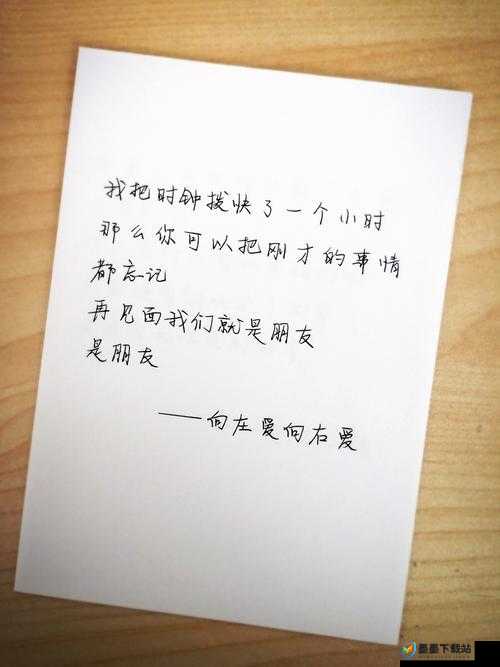 我把时钟拨快了一个小时
那么你可以把刚才的事情
都忘记
再见面我们就是朋友
是朋友
——向左爱向右爱
墨墨下载站